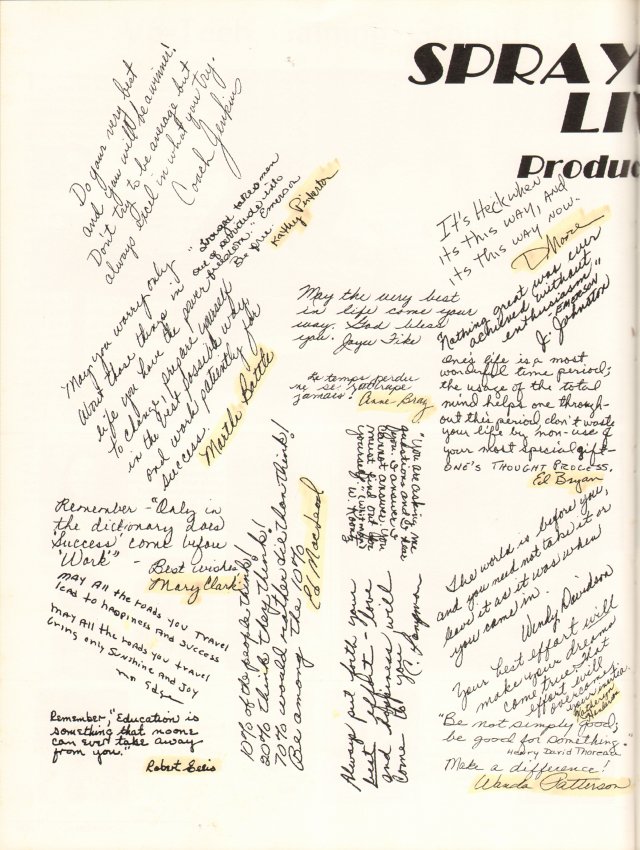 SPRAY
LI
Produc
Do your very best
and you will be a winner!
Don't try to be average but
always excel in what you try.
Coach Jenkins
"Thought takes man
out of servitude into
freedom." Emerson
Be free.
Kathy Pinkerton
"May you worry only
about those things in
life you have the power
to change, prepare yourself
in the best possible way,
and work patiently for
success.
Martha Battle
May the very best
in life come your
way. God bless
you. Joyce Fike
Le temps perdu
ne se rattrape
jamais! Anne Bray
It's Heck when
it's this way, and
it's this way now.
D Moore
"Nothing great was ever
achieved without
enthusiasm"
EMERSON
J. Johnston
One's life is a most
wonderful time period;
the usage of the total
mind helps one through-
out this period, don't waste
your life by non-use of
your most special gift-
ONE'S THOUGHT PROCESS.
Ed Bryan
Remember - "Only in
the dictionary does
'Success' come before
'Work'" -
Best wishes
Mary Clark
MAY All the roads you TRAVEL
lead to happiness AND success
MAY All the roads you travel
bring only Sunshine and Joy
Edge
Remember, "Education is
something that no one
can ever take away
from you."
Robert Ellis
10% of the people think!
20% think they think!
70% would rather die than think!
Be among the 10%
Ed MacLeod
"You are asking me
questions and I hear
you. I answer I
cannot answer. You
must find out for
yourself." Whitman
W. Toony
Always put forth your
best effort - love
and happiness will
come to you.
C. Sangman
The world is before you,
and you need not take it or
leave it as it was when
you came in.
Wendy Davidson
Your best effort will
make your dreams
come true. That
effort will
overcome
your inertia.
"Be not simply good;
be good for something."
Henry David Thoreau
Make a difference!
Wanda Patterson